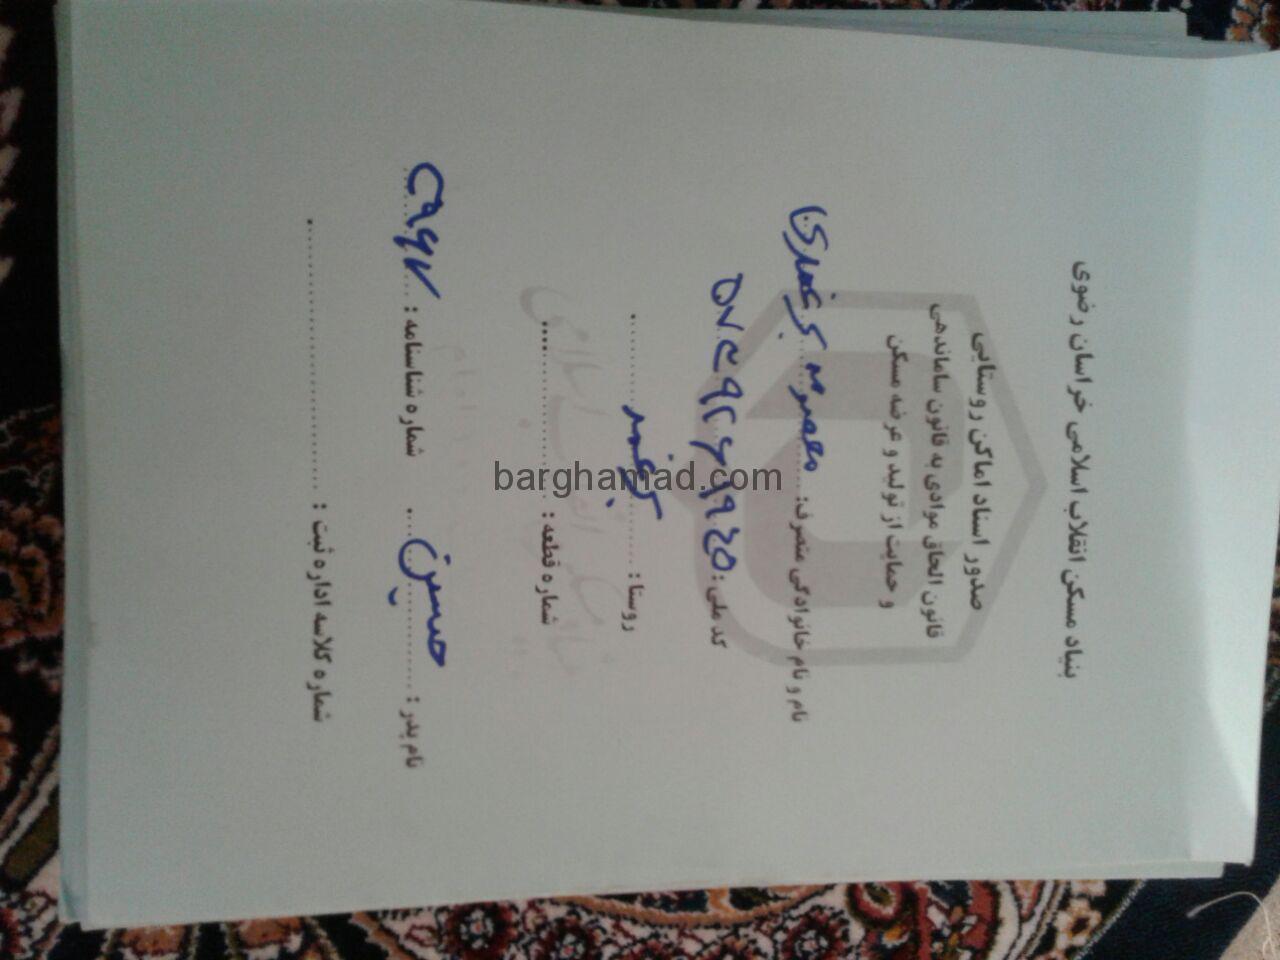 بنیاد مسکن انقلاب اسلامی خراسان رضوی
صدور اسناد اماکن روستایی
قانون الحاق موادی به قانون ساماندهی
و حمایت از تولید و عرضه مسکن
نام و نام خانوادگی متصرف: معصومه برغمدی
کد ملی:
روستا: برغمد
شماره قطعه:
نام پدر: حسین شماره شناسنامه:
شماره کلاسه اداره ثبت:
barghamad.com